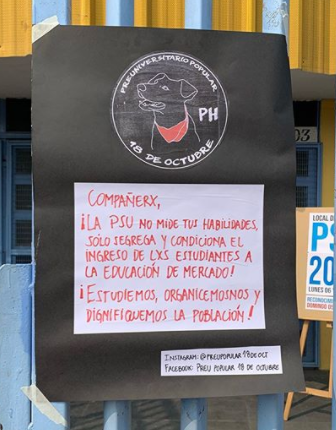 PREUNIVERSITARIO POPULAR
PH
18 DE OCTUBRE
COMPAÑERX,
¡LA PSU NO MIDE TUS HABILIDADES,
SÓLO SEGREGA Y CONDICIONA EL
INGRESO DE LXS ESTUDIANTES A
LA EDUCACIÓN DE MERCADO!
¡ESTUDIEMOS, ORGANICEMOSNOS Y
DIGNIFIQUEMOS LA POBLACIÓN!
INSTAGRAM: @PREUPOPULAR18DEOCT
FACEBOOK: PREU POPULAR 18 DE OCTUBRE
03
LOCAL D
PS
20
LUNES 00